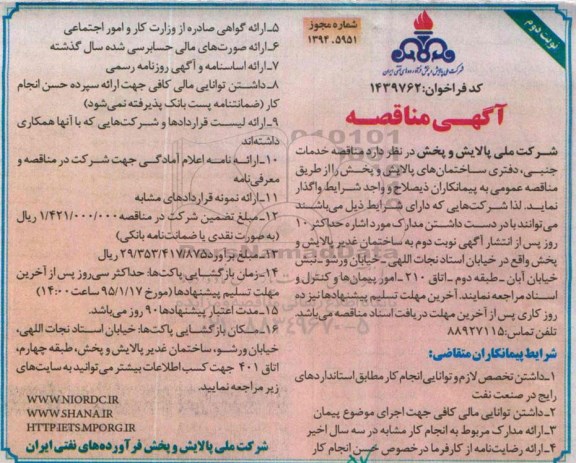 نوبت دوم
شماره مجوز
۱۳۹۴.۵۹۵۱
شرکت ملی پالایش و پخش فرآورده‌های نفتی ایران
کد فراخوان: ۱۴۳۹۷۶۲
آگهی مناقصه
شرکت ملی پالایش و پخش در نظر دارد مناقصه خدمات
جنبی، دفتری ساختمان‌های پالایش و پخش را از طریق
مناقصه عمومی به پیمانکاران ذیصلاح و واجد شرایط واگذار
نماید. لذا شرکت‌هایی که دارای شرایط ذیل می‌باشند
می‌توانند با در دست داشتن مدارک مورد اشاره حداکثر ۱۰
روز پس از انتشار آگهی نوبت دوم به ساختمان غدیر پالایش و
پخش واقع در خیابان استاد نجات اللهی - خیابان ورشو - نبش
خیابان آبان - طبقه دوم - اتاق ۲۱۰ - امور پیمان‌ها و کنترل و
اسناد مراجعه نمایند. آخرین مهلت تسلیم پیشنهادها نیز ده
روز کاری پس از آخرین مهلت دریافت اسناد مناقصه می‌باشد.
تلفن تماس: ۸۸۹۲۷۱۱۵
شرایط پیمانکاران متقاضی:
۱- داشتن تخصص لازم و توانایی انجام کار مطابق استانداردهای
رایج در صنعت نفت
۲- داشتن توانایی مالی کافی جهت اجرای موضوع پیمان
۳- ارائه مدارک مربوط به انجام کار مشابه در سه سال اخیر
۴- ارائه رضایت‌نامه از کارفرما در خصوص حسن انجام کار
۵- ارائه گواهی صادره از وزارت کار و امور اجتماعی
۶- ارائه صورت‌های مالی حسابرسی شده سال گذشته
۷- ارائه اساسنامه و آگهی روزنامه رسمی
۸- داشتن توانایی مالی کافی جهت ارائه سپرده حسن انجام
کار (ضمانتنامه پست بانک پذیرفته نمی‌شود)
۹- ارائه لیست قراردادها و شرکت‌هایی که با آنها همکاری
داشته‌اند
۱۰- ارائه نامه اعلام آمادگی جهت شرکت در مناقصه و
معرفی‌نامه
۱۱- ارائه نمونه قراردادهای مشابه
۱۲- مبلغ تضمین شرکت در مناقصه ۱/۴۲۱/۰۰۰/۰۰۰ ریال
(به صورت نقدی یا ضمانت‌نامه بانکی)
۱۳- مبلغ برآورد ۲۹/۳۵۳/۴۱۷/۸۷۵ ریال
۱۴- زمان بازگشایی پاکت‌ها: حداکثر سی روز پس از آخرین
مهلت تسلیم پیشنهادها (مورخ ۹۵/۱/۱۷ ساعت ۱۴:۰۰)
۱۵- مدت اعتبار پیشنهادها ۹۰ روز می‌باشد.
۱۶- مکان بازگشایی پاکت‌ها: خیابان استاد نجات اللهی،
خیابان ورشو، ساختمان غدیر پالایش و پخش، طبقه چهارم،
اتاق ۴۰۱ جهت کسب اطلاعات بیشتر می‌توانید به سایت‌های
زیر مراجعه نمایید.
WWW.NIORDC.IR
WWW.SHANA.IR
HTTP:IETS.MPORG.IR
شرکت ملی پالایش و پخش فرآورده‌های نفتی ایران